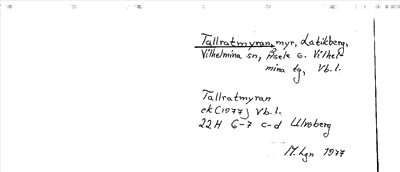 Tallratmyran, myr, Latikberg,
Vilhelmina sn, Åsele o. Vilhel-
mina tg, Vb. l.
Tallratmyran
ek (1977) Vb. l.
22H 6-7 c-d Ulvoberg
M. Lgn 1977